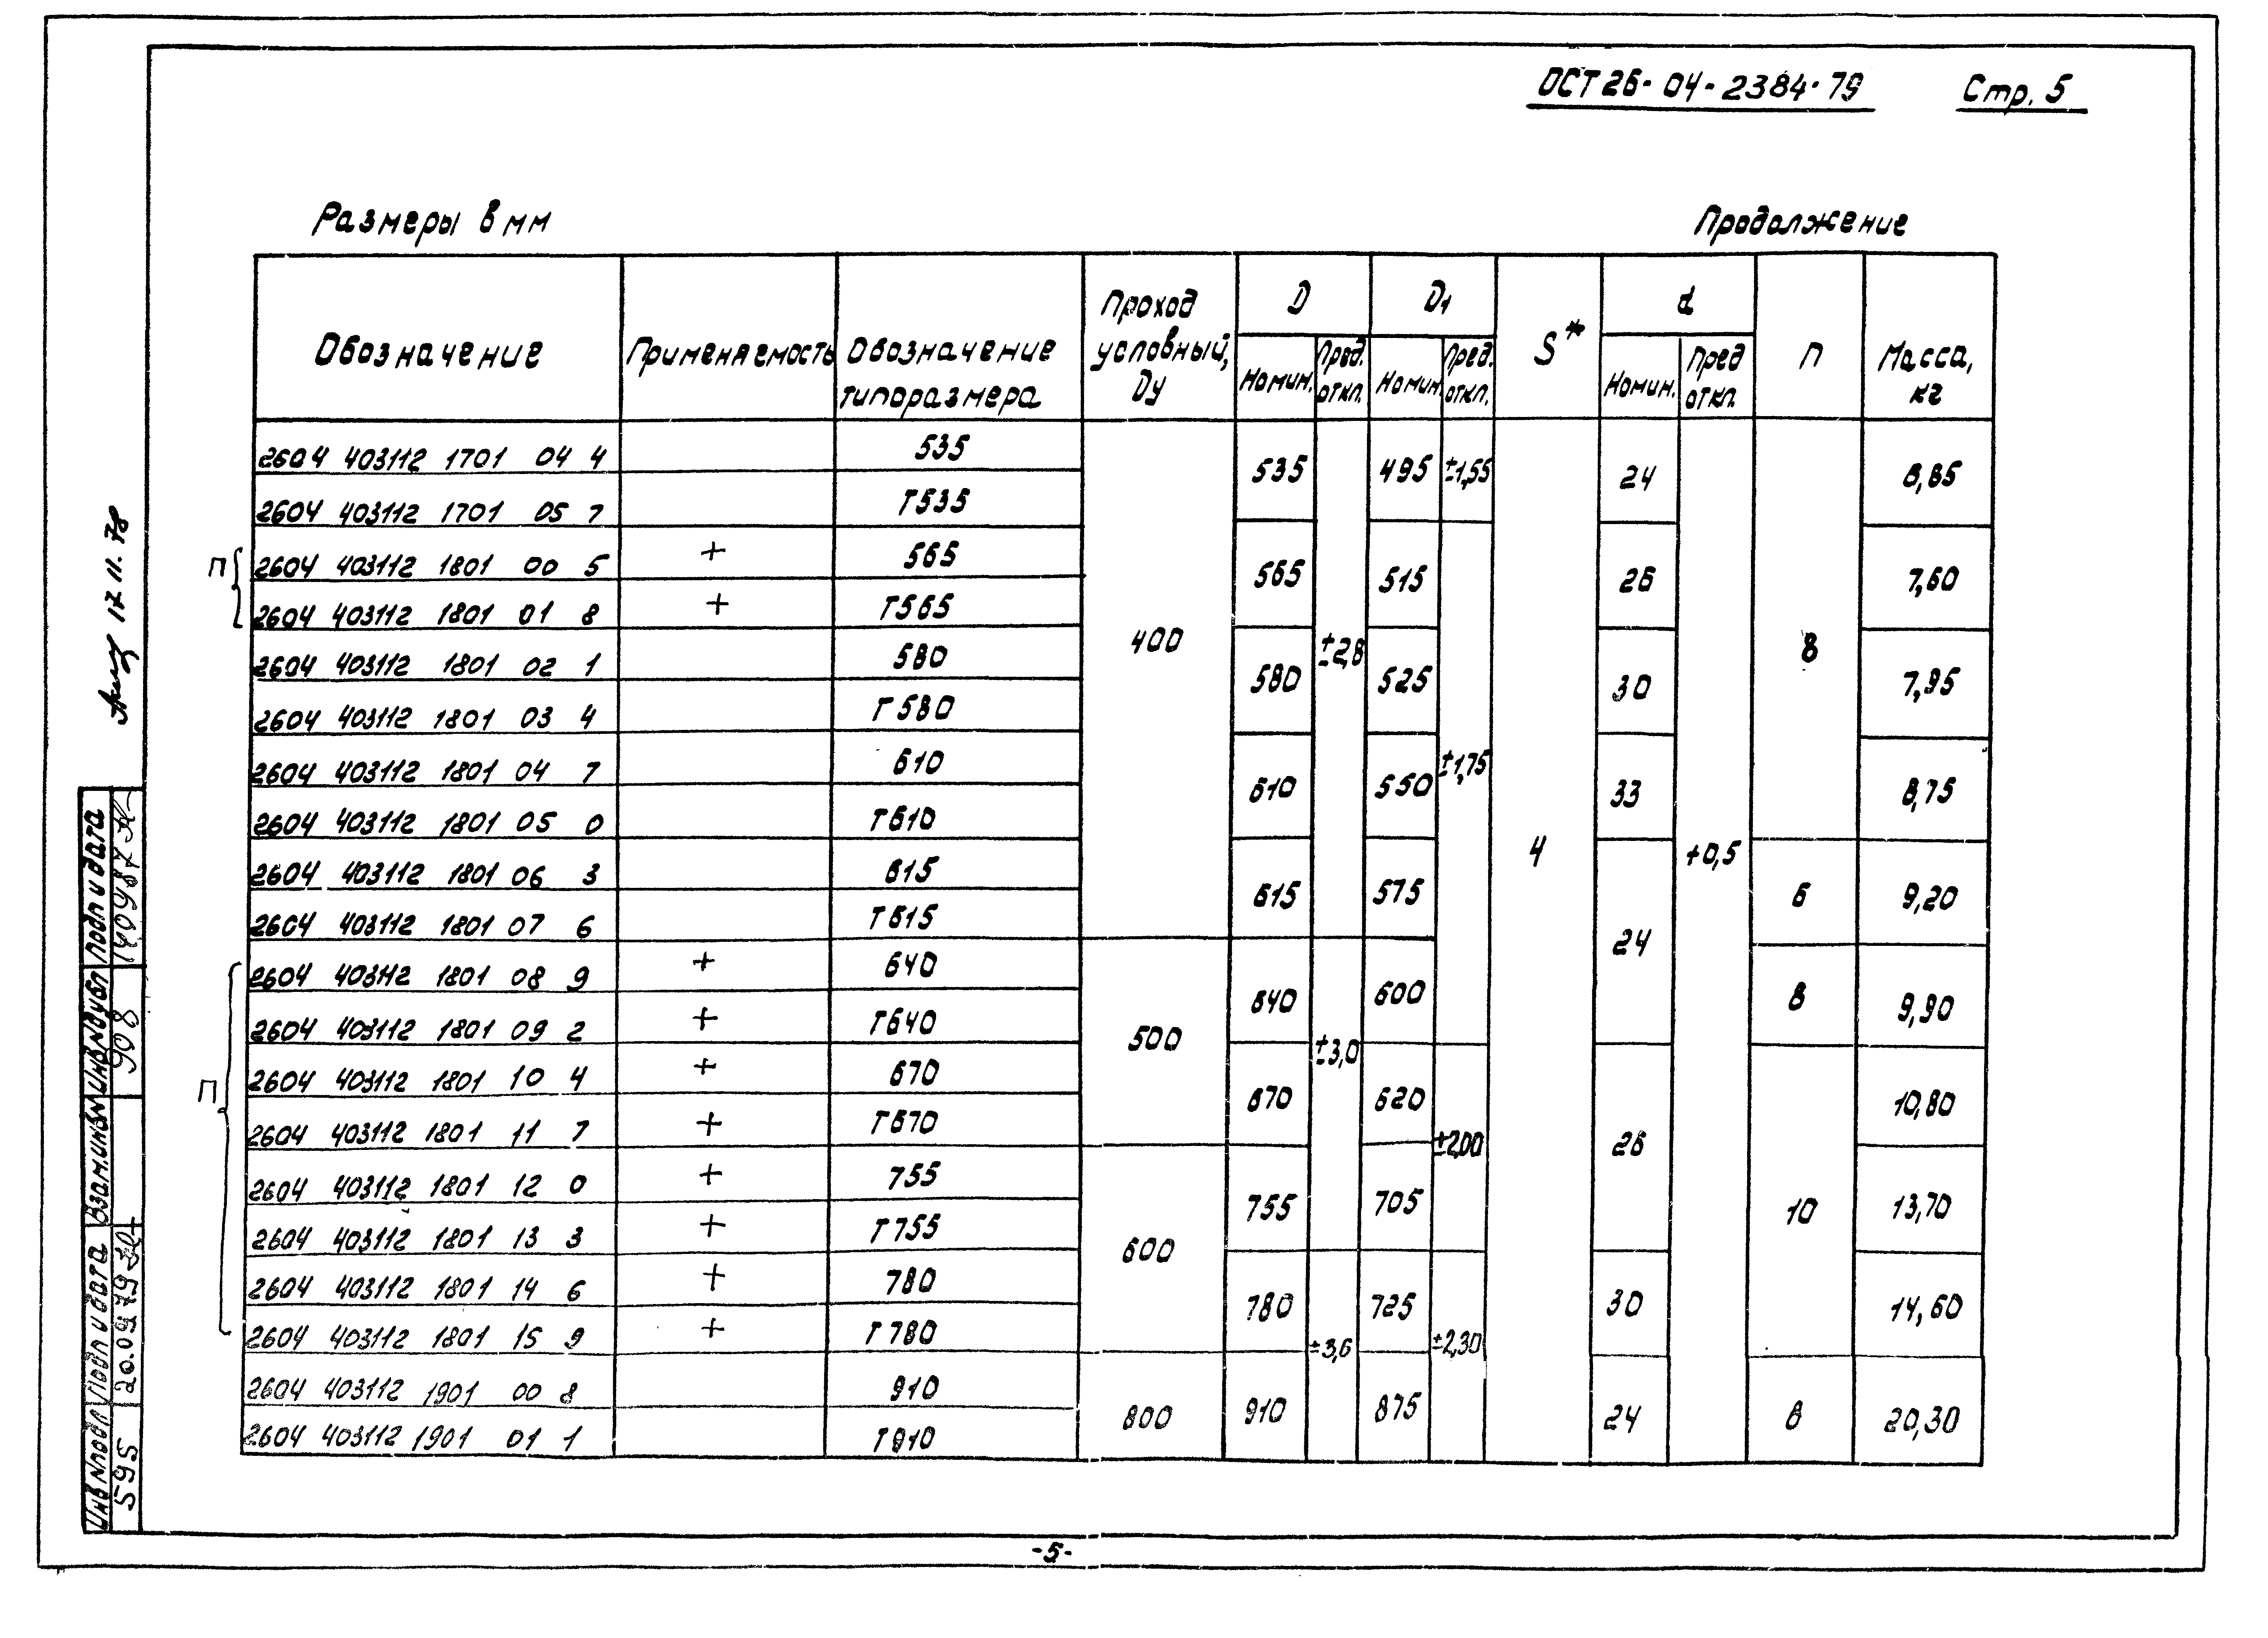 ОСТ 26-04-2384-79 Стр. 5
Размеры в мм Продолжение
Обозначение Применяемость Обозначение типоразмера Проход условный, Dу D D1 S* d n Масса, кг
Номин. Пред. откл. Номин. Пред. откл. Номин. Пред откл.
2604 403112 1701 04 4 535
2604 403112 1701 05 7 Т535
535 495 ±1,55 24 6,85
П 2604 403112 1801 00 5 + 565
2604 403112 1801 01 8 + Т565
565 515 26 7,60
400 ±2,8 8
2604 403112 1801 02 1 580
2604 403112 1801 03 4 Т580
580 525 30 7,95
±1,75
2604 403112 1801 04 7 610
2604 403112 1801 05 0 Т610
610 550 33 8,75
4 +0,5
2604 403112 1801 06 3 615
2604 403112 1801 07 6 Т615
615 575 6 9,20
24
2604 403112 1801 08 9 + 640
2604 403112 1801 09 2 + Т640
640 600 8 9,90
500 ±3,0
П 2604 403112 1801 10 4 + 670
2604 403112 1801 11 7 + Т670
670 620 10,80
±2,00 26
2604 403112 1801 12 0 + 755
2604 403112 1801 13 3 + Т755
755 705 10 13,70
600
2604 403112 1801 14 6 + 780
2604 403112 1801 15 9 + Т780
780 725 30 14,60
±3,6 ±2,30
2604 403112 1901 00 8 910
2604 403112 1901 01 1 Т910
800 910 875 24 8 20,30
17 11. 78
Инв № подл Подп и дата Взам. инв № Инв № дубл Подп и дата
595 20.0979 908
-5-